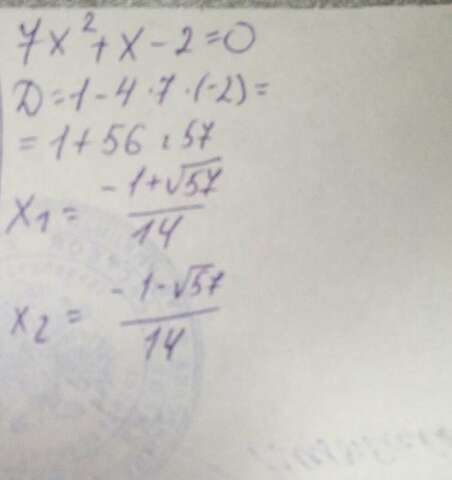 7x²+x-2=0
D=1-4·7·(-2)=
=1+56=57
x₁= (-1+√57)/14
x₂= (-1-√57)/14